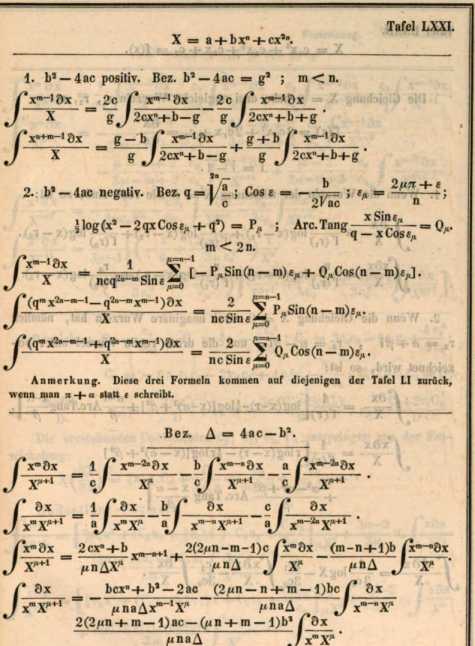 Tafel LXXI.
X = a + bxⁿ + cx²ⁿ.
1. b² — 4ac positiv. Bez. b² — 4ac = g² ; m < n.
∫ x^{m-1}∂x / X = 2c/g ∫ x^{m-1}∂x / (2cxⁿ+b—g) — 2c/g ∫ x^{m-1}∂x / (2cxⁿ+b+g) .
∫ x^{n+m-1}∂x / X = (g—b)/g ∫ x^{m-1}∂x / (2cxⁿ+b—g) + (g+b)/g ∫ x^{m-1}∂x / (2cxⁿ+b+g) .
2. b² — 4ac negativ. Bez. q = \sqrt[2n]{a/c} ; Cos ε = — b / 2√ac ; ε_μ = (2μπ + ε)/n ;
½ log (x² — 2qx Cos ε_μ + q²) = P_μ ; Arc.Tang x Sin ε_μ / (q — x Cos ε_μ) = Q_μ.
m < 2n.
∫ x^{m-1}∂x / X = 1 / (ncq^{2n-m} Sin ε) Σ_{μ=0}^{μ=n-1} [ — P_μ Sin (n — m) ε_μ + Q_μ Cos (n — m) ε_μ].
∫ (q^m x^{2n-m-1} — q^{2n-m} x^{m-1}) ∂x / X = 2 / (nc Sin ε) Σ_{μ=0}^{μ=n-1} P_μ Sin (n — m) ε_μ.
∫ (q^m x^{2n-m-1} + q^{2n-m} x^{m-1}) ∂x / X = 2 / (nc Sin ε) Σ_{μ=0}^{μ=n-1} Q_μ Cos (n — m) ε_μ.
Anmerkung. Diese drei Formeln kommen auf diejenigen der Tafel LI zurück,
wenn man π + α statt ε schreibt.
Bez. Δ = 4ac — b².
∫ x^m ∂x / X^{μ+1} = 1/c ∫ x^{m-2n} ∂x / X^μ — b/c ∫ x^{m-n} ∂x / X^{μ+1} — a/c ∫ x^{m-2n} ∂x / X^{μ+1} .
∫ ∂x / (x^m X^{μ+1}) = 1/a ∫ ∂x / (x^m X^μ) — b/a ∫ ∂x / (x^{m-n} X^{μ+1}) — c/a ∫ ∂x / (x^{m-2n} X^{μ+1}) .
∫ x^m ∂x / X^{μ+1} = (2cxⁿ + b) / (μnΔX^μ) x^{m-n+1} + 2(2μn—m—1)c / (μnΔ) ∫ x^m ∂x / X^μ — (m—n+1)b / (μnΔ) ∫ x^{m-n} ∂x / X^μ .
∫ ∂x / (x^m X^{μ+1}) = — (bcxⁿ + b² — 2ac) / (μnaΔx^{m-1}X^μ) — (2μn — n + m — 1)bc / (μnaΔ) ∫ ∂x / (x^{m-n} X^μ)
2(2μn + m — 1)ac — (μn + m — 1)b² / (μnaΔ) ∫ ∂x / (x^m X^μ) .